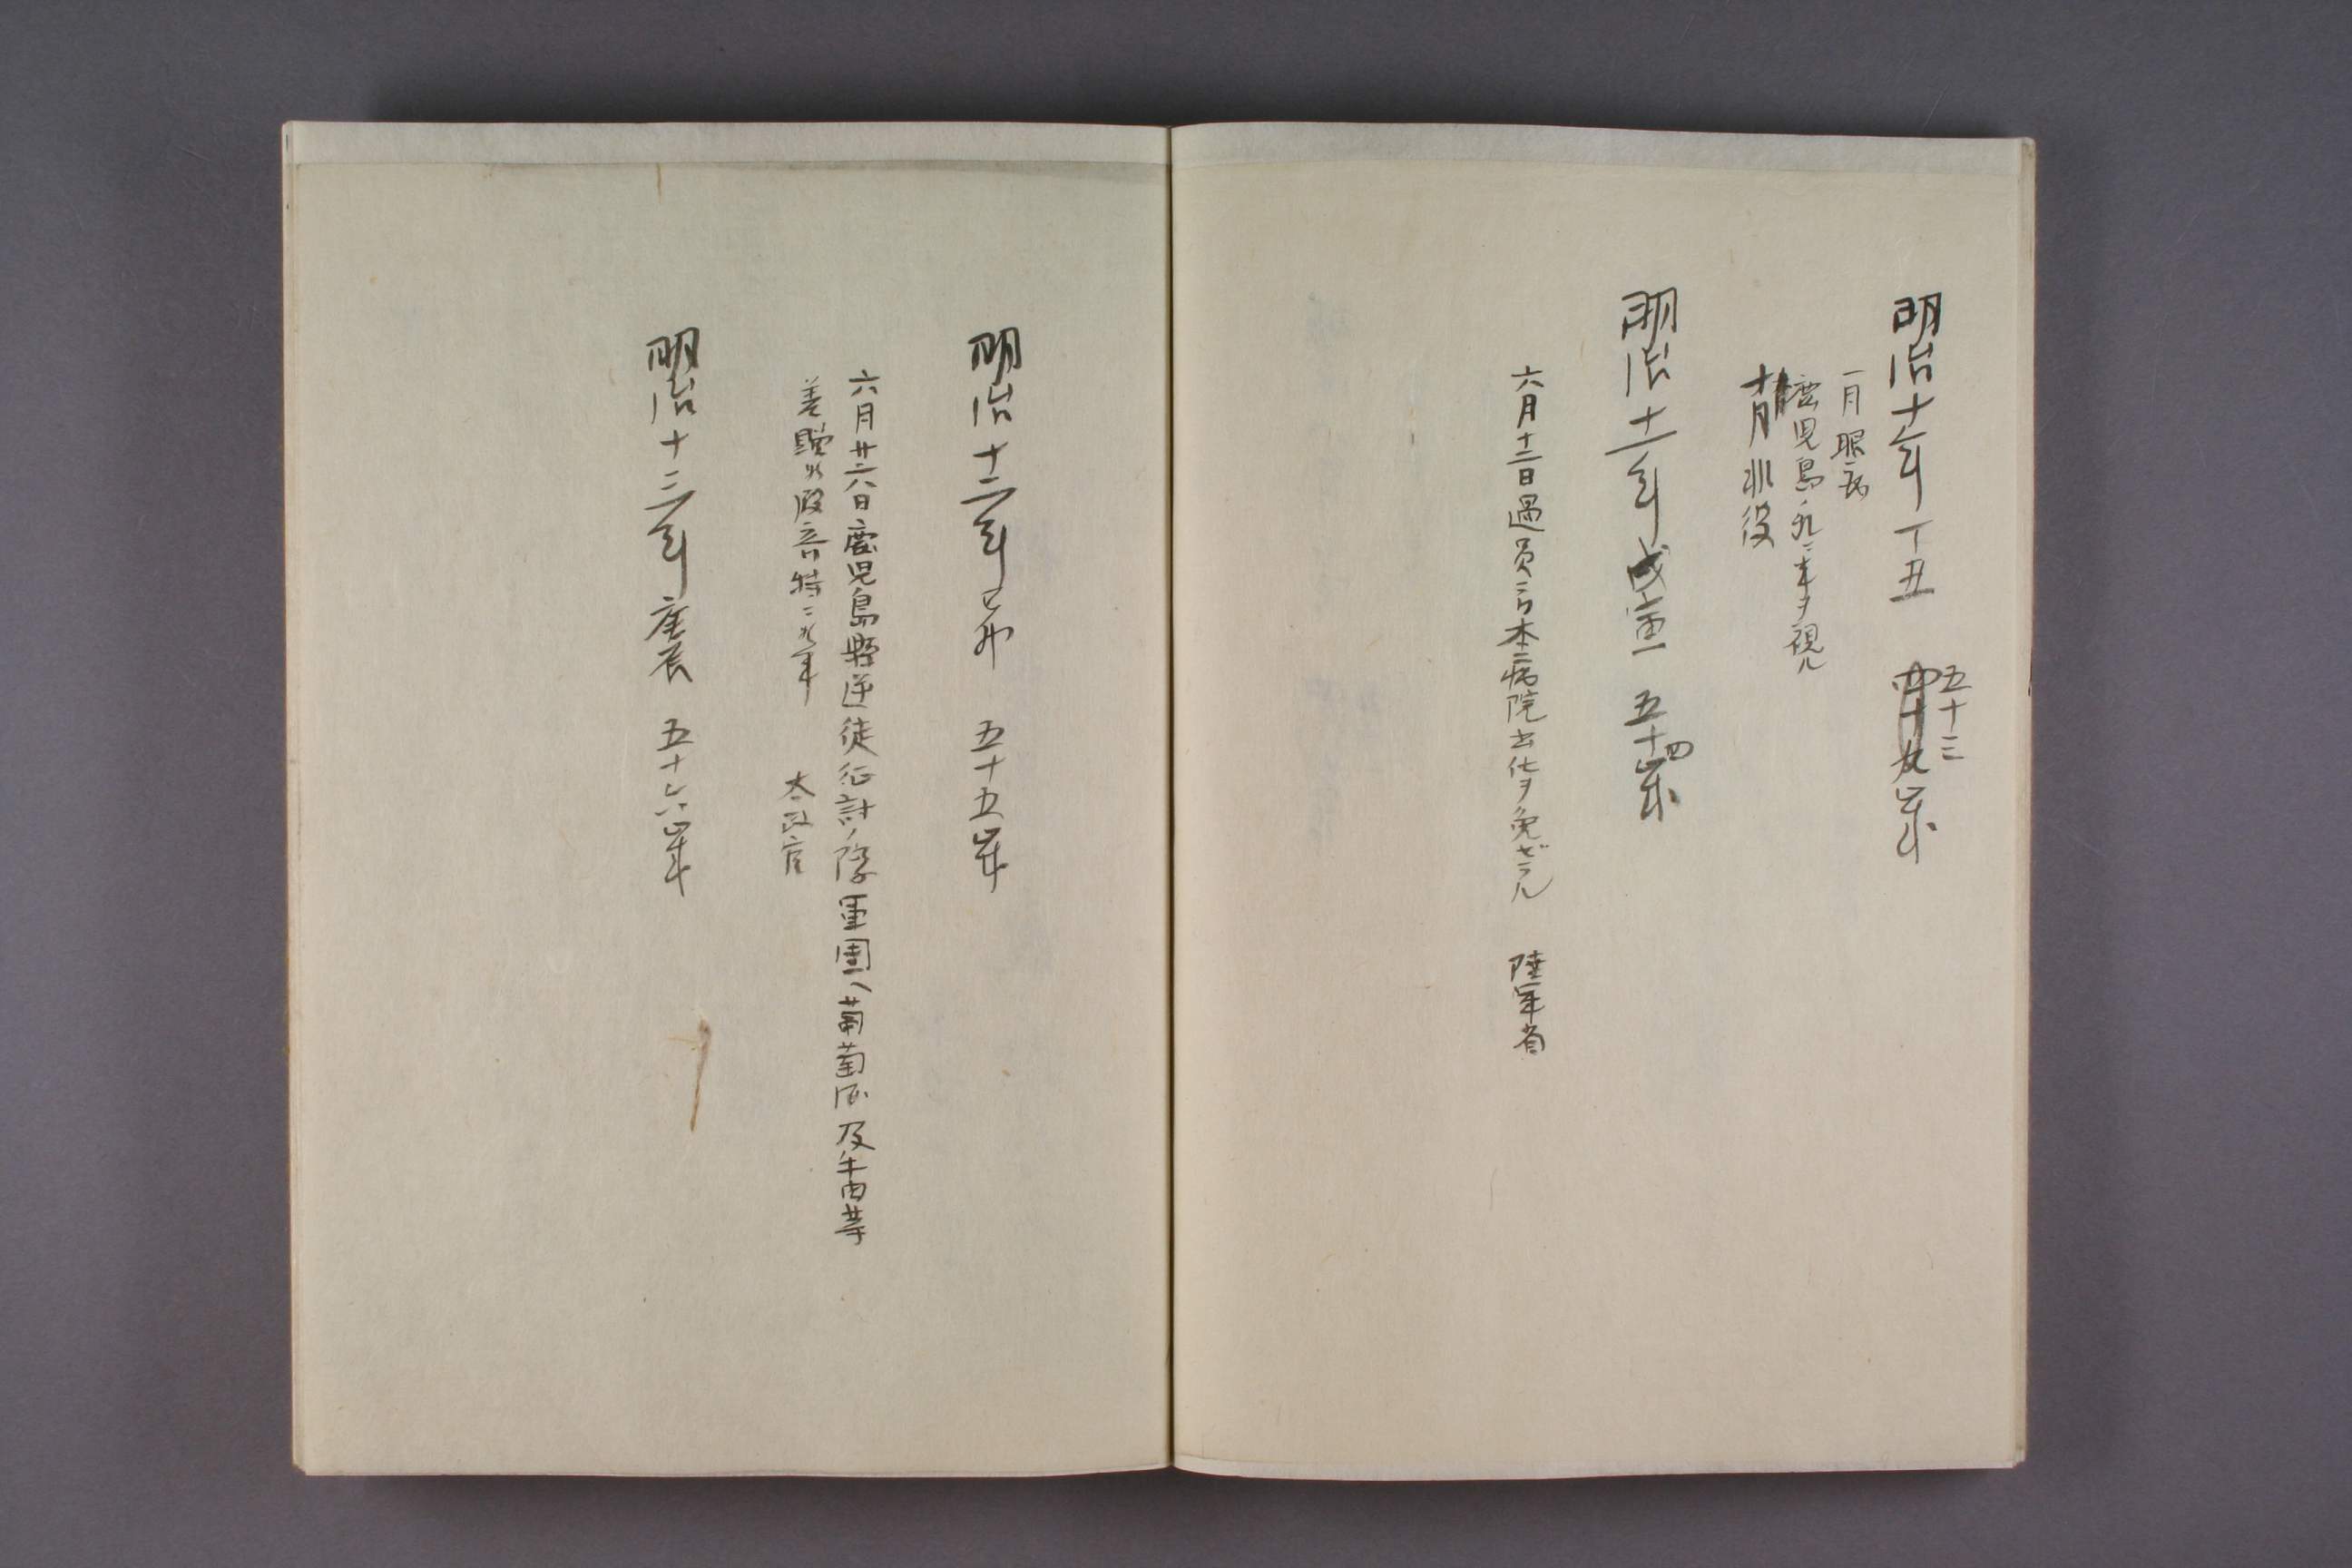 明治十年丁丑 五十三歳
一月眼病
鹿児島ノ乱ニ事ヲ視ル
十月非役
明治十一年戊寅 五十四歳
六月十二日過員ニ付本病院出仕ヲ免ゼラル 陸軍省
明治十二年己卯 五十五歳
六月廿六日鹿児島縣逆徒征討ノ際軍團ヘ葡萄酒及牛肉等
差贈候段奇特ニ候事 太政官
明治十三年庚辰 五十六歳